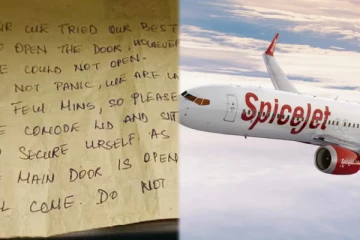 SIR WE TRIED OUR BEST
TO OPEN THE DOOR, HOWEVER
WE COULD NOT OPEN.
NOT PANIC, WE ARE
FEW MINS, SO PLEASE
COMODE LID AND SIT
SECURE URSELF. AS
MAIN DOOR IS OPEN
COME. DO NOT
SpiceJet